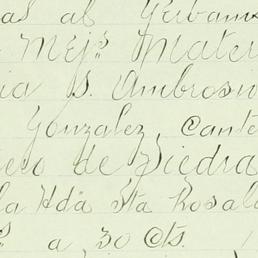 al Yerbanis
Mejs. Mater
ia S. Ambrosio
Gonzalez, Cante
de Piedra
la Hda Sta Rosal
a 30 Cts.